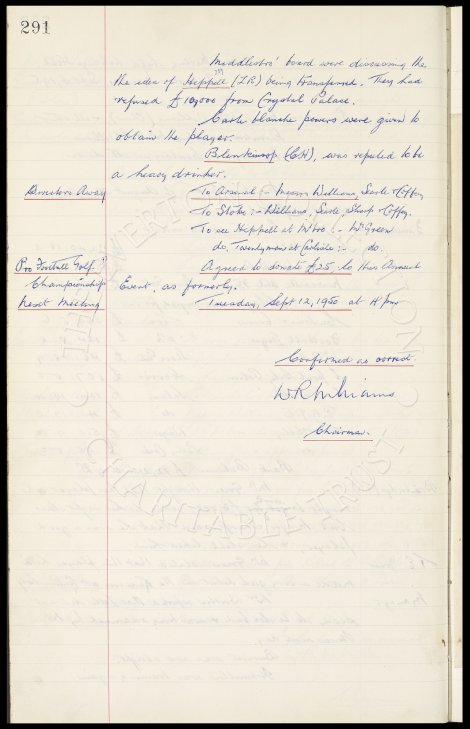 291
Middlesbro' board were discussing the
the idea of Heppell (I.R) being transferred. They had
refused £10,000 from Crystal Palace.
Carte blanche powers were given to
obtain the player.
Blenkinsop (CH), was reputed to be
a heavy drinker.
Directors Away To Arsenal - Messrs Williams, Searle & Coffey
To Stoke :- Williams, Searle, Sharp & Coffey.
To see Heppell at M'bro :- Mr Green
do. Twentyman at Carlisle :- do.
Pro Football Golf Agreed to donate £25 to this Annual
Championship Event, as formerly.
Next Meeting Tuesday, Sept 12, 1950 at 4 pm
Confirmed as correct
W R Williams
Chairman.
CHARITABLE TRUST